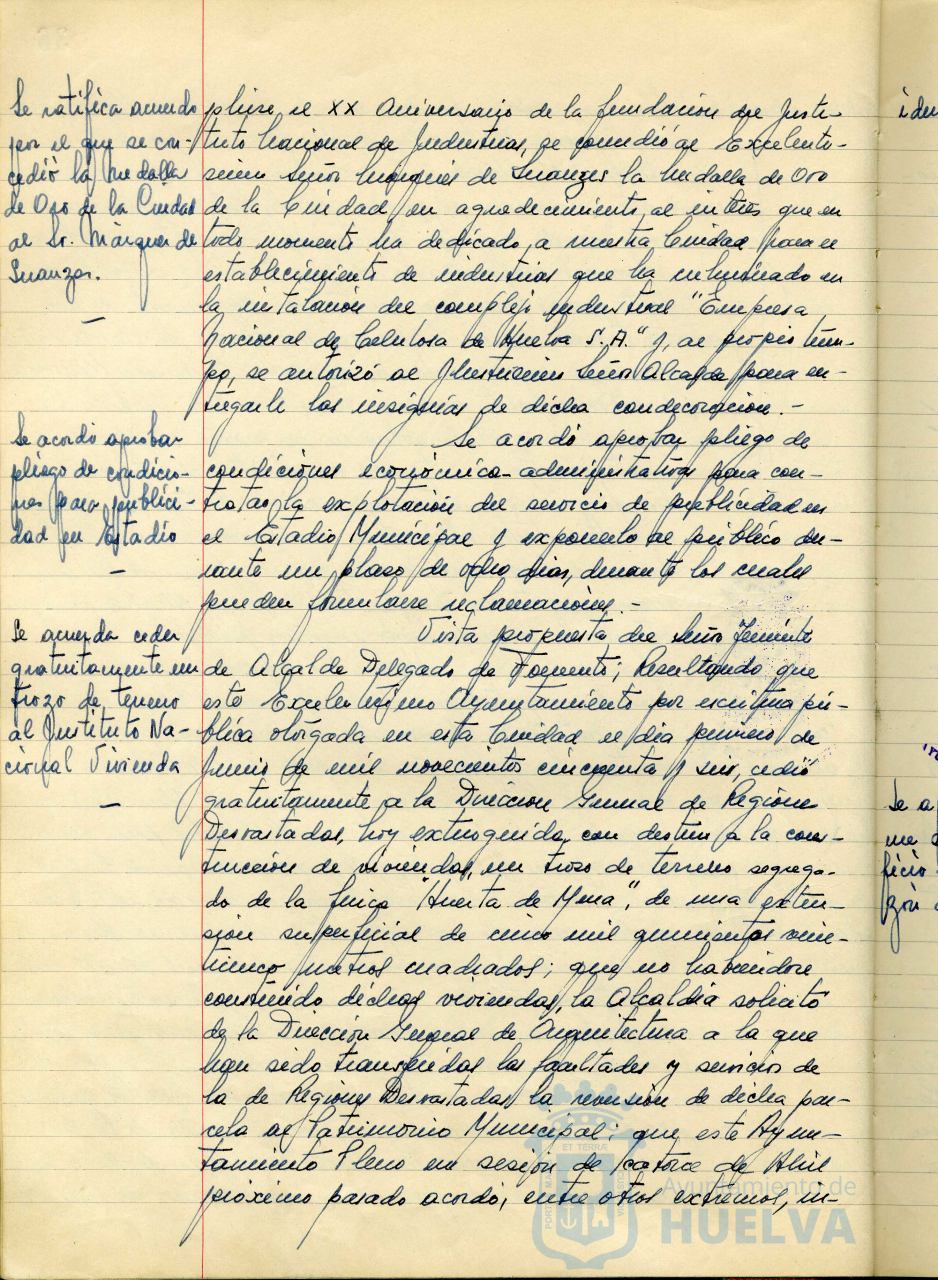 Se ratifica acuerdo
por el que se con-
cedió la Medalla
de Oro de la Ciudad
al Sr. Marques de
Suanzes.
plirse el XX Aniversario de la fundacion del Insti-
tuto Nacional de Industrias, se concedió al Excelentí-
simo Señor Marqués de Suanzes la Medalla de Oro
de la Ciudad, en agradecimiento al interés que en
todo momento ha dedicado a nuestra Ciudad para el
establecimiento de industrias que ha culminado en
la instalación del complejo industrial "Empresa
Nacional de Celulosa de Huelva S.A." y, al propio tiem-
po, se autorizó al Ilustrísimo Señor Alcalde para en-
tregarle las insignias de dicha condecoracion.-
Se acordó aprobar
pliego de condicio-
nes para publici-
dad en Estadio
Se acordó aprobar pliego de
condiciones económico-administrativas para con-
tratar la explotación del servicio de publicidad en
el Estadio Municipal y exponerlo al público du-
rante un plazo de ocho dias, durante los cuales
pueden formularse reclamaciones.-
Se acuerda ceder
gratuitamente un
trozo de terreno
al Instituto Na-
cional Vivienda
Vista propuesta del Señor Teniente
de Alcalde Delegado de Fomento; Resultando que
este Excelentísimo Ayuntamiento por escritura pú-
blica otorgada en esta Ciudad el dia primero de
Junio de mil novecientos cincuenta y seis, cedió
gratuitamente a la Direccion General de Regiones
Desvastadas, hoy extinguida, con destino a la cons-
trucción de viviendas, un trozo de terreno segrega-
do de la finca "Huerta de Mena", de una exten-
sión superficial de cinco mil quinientos vein-
ticinco metros cuadrados; que no habiendose
construido dichas viviendas, la Alcaldía solicitó
de la Dirección General de Arquitectura a la que
han sido transferidas las facultades y servicios de
la de Regiones Desvastadas, la reversión de dicha par-
cela al Patrimonio Municipal; que este Ayun-
tamiento Pleno en sesión de catorce de Abril
próximo pasado acordó, entre otros extremos, in-
Ayuntamiento de
HUELVA